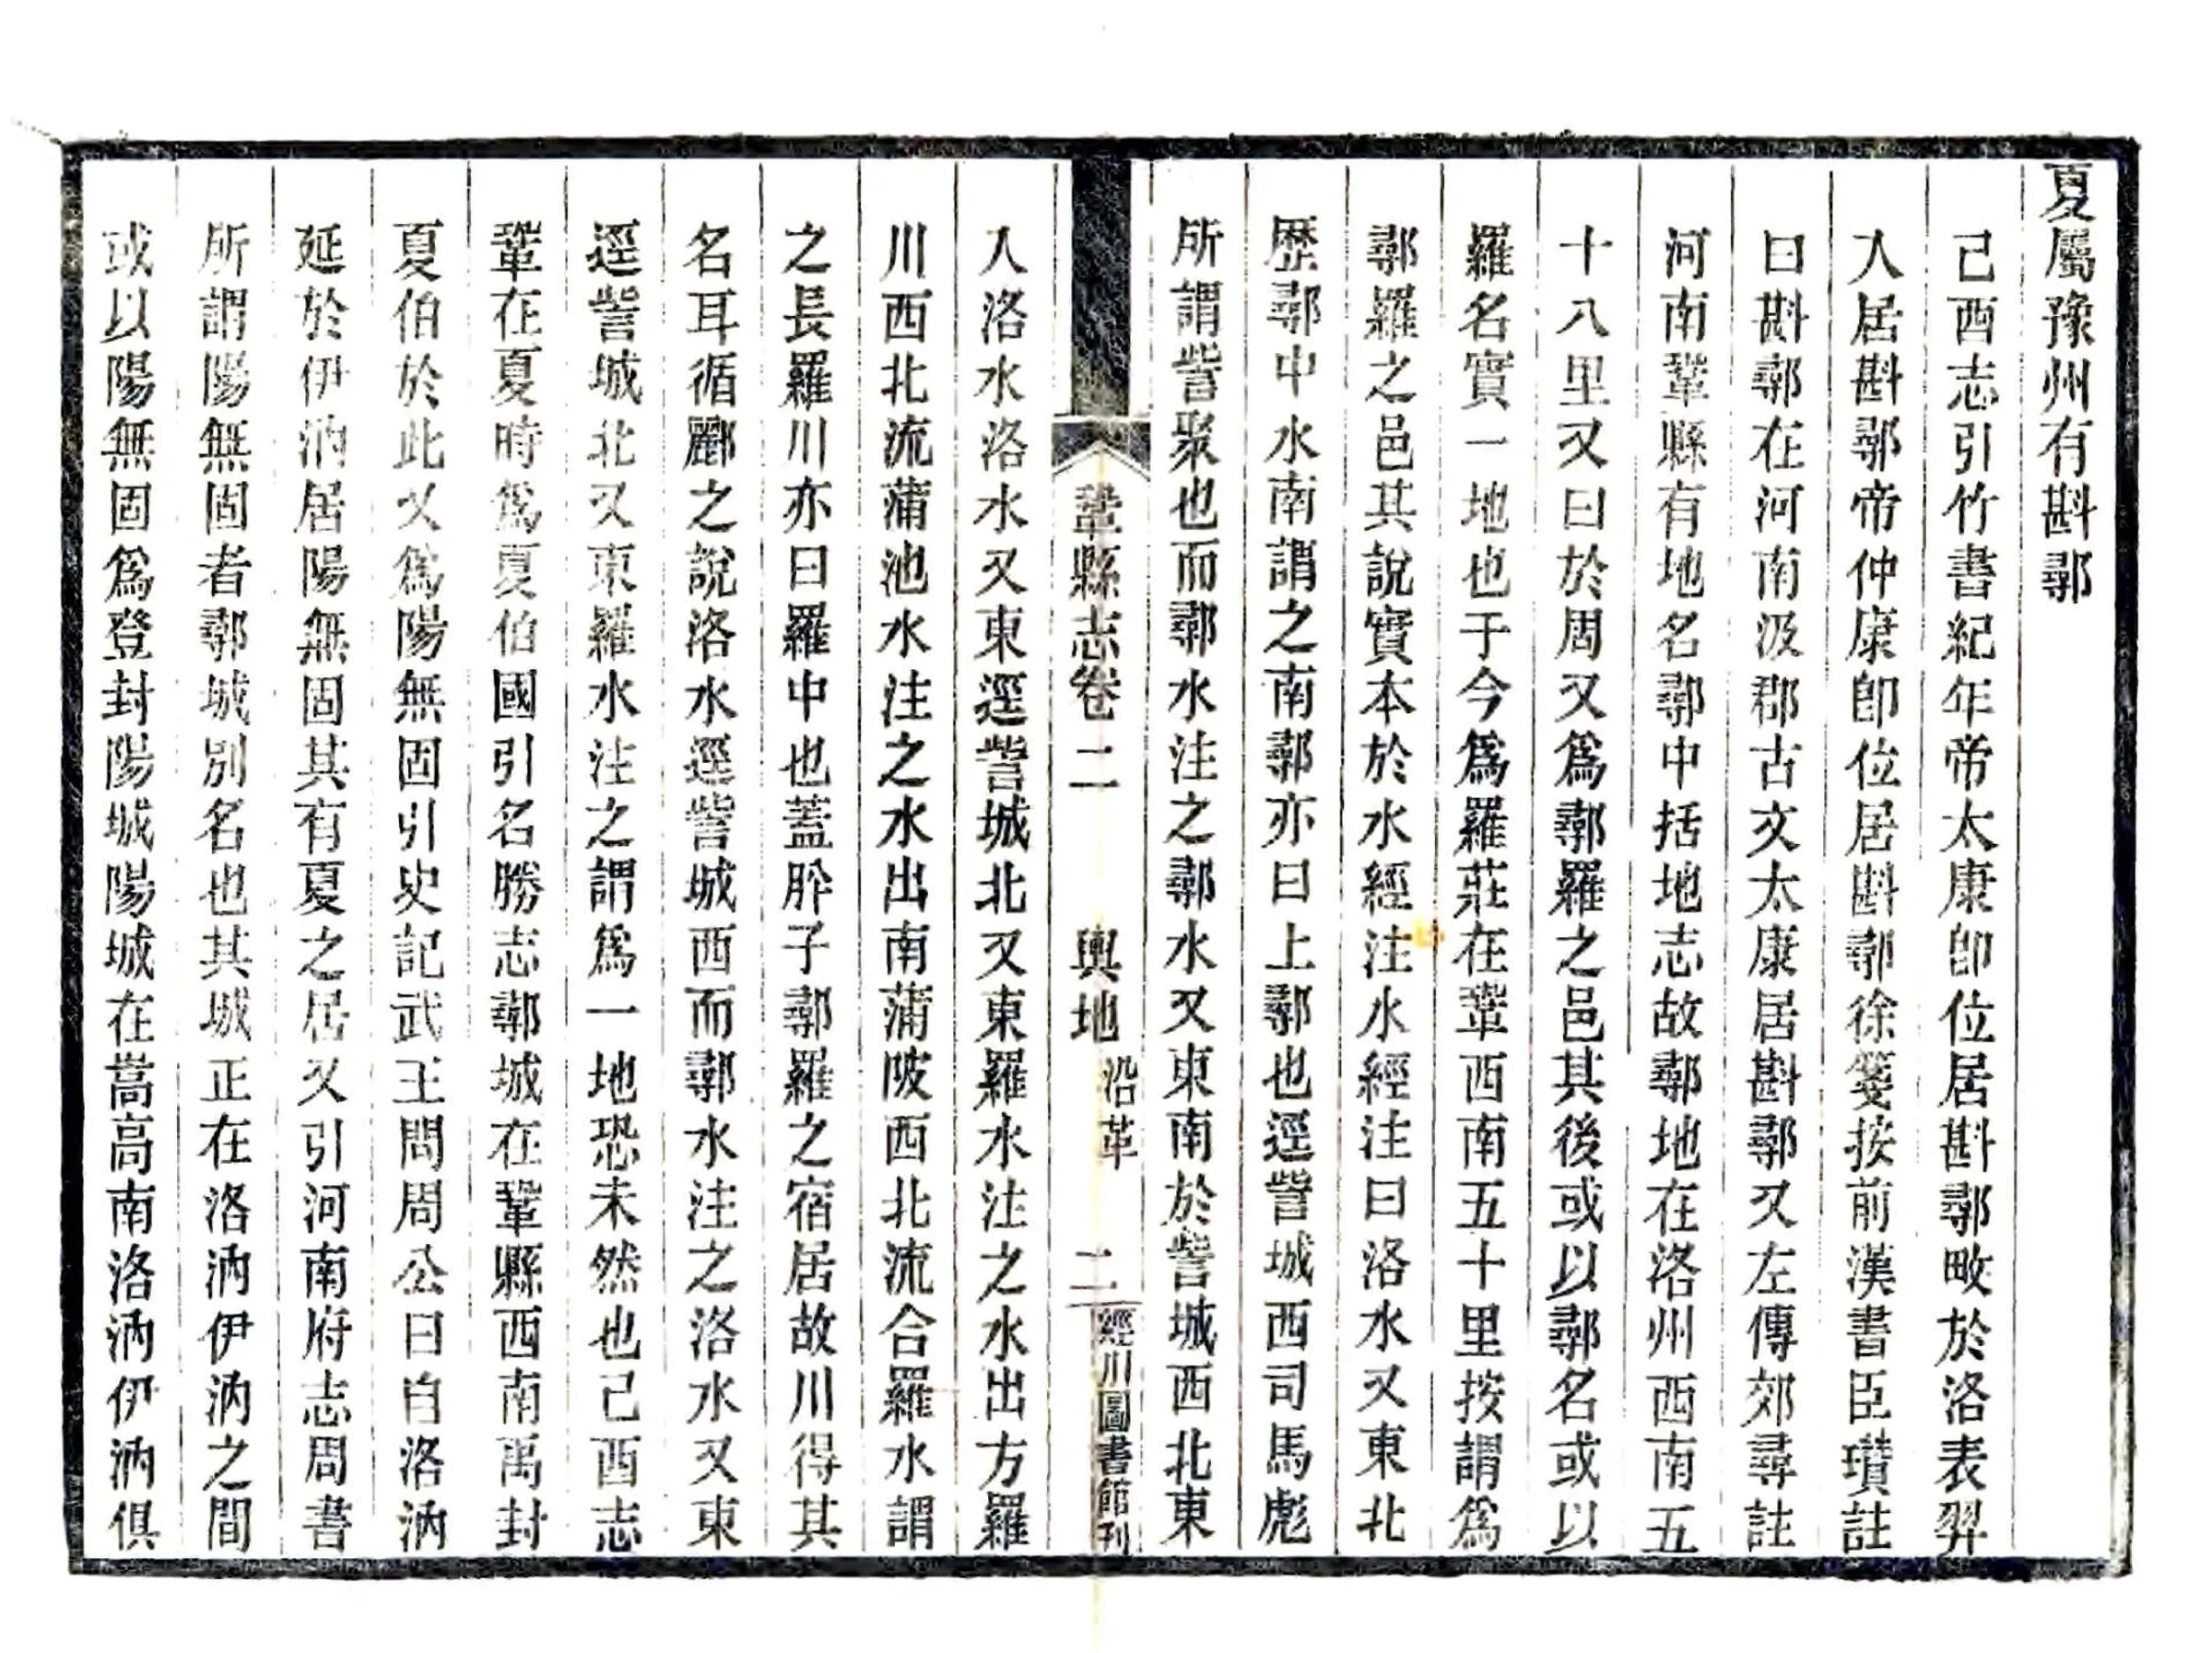 夏屬豫州有斟鄩
己酉志引竹書紀年帝太康卽位居斟鄩畋於洛表羿
入居斟鄩帝仲康卽位居斟鄩徐箋按前漢書臣瓚註
曰斟鄩在河南汲郡古文太康居斟鄩又左傳郊尋註
河南鞏縣有地名鄩中括地志故鄩地在洛州西南五
十八里又曰於周又爲鄩羅之邑其後或以鄩名或以
羅名實一地也于今爲羅莊在鞏西南五十里按謂爲
鄩羅之邑其說實本於水經注水經注曰洛水又東北
歷鄩中水南謂之南鄩亦曰上鄩也逕訾城西司馬彪
所謂訾聚也而鄩水注之鄩水又東南於訾城西北東
入洛水洛水又東逕訾城北又東羅水注之水出方羅
川西北流蒲池水注之水出南蒲陂西北流合羅水謂
之長羅川亦曰羅中也蓋肸子鄩羅之宿居故川得其
名耳循酈之說洛水逕訾城西而鄩水注之洛水又東
逕訾城北又東羅水注之謂爲一地恐未然也己酉志
鞏在夏時爲夏伯國引名勝志鄩城在鞏縣西南禹封
夏伯於此又爲陽無固引史記武王問周公曰自洛汭
延於伊汭居陽無固其有夏之居又引河南府志周書
所謂陽無固者鄩城別名也其城正在洛汭伊汭之間
或以陽無固爲登封陽城陽城在嵩高南洛汭伊汭俱
鞏縣志卷二 輿地 沿革 二 經川圖書館刊